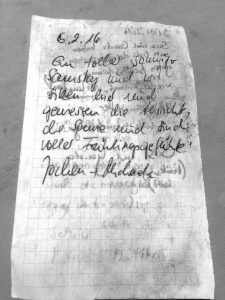 6.2.16
Ein toller sonniger
Samstag und wir
sitzen hier und
geniessen die Aussicht,
die Sonne und sind
voller Frühlingsgefühle!
Jochen + Michaela